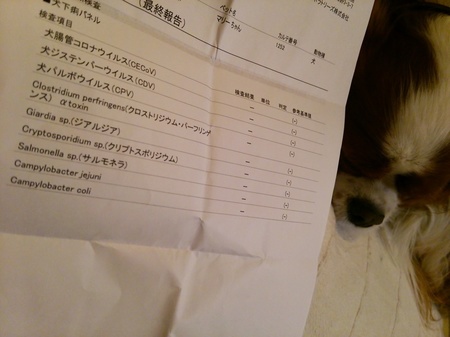 検査
(最終報告)
ペット名 カルテ番号 動物種
マリーちゃん 1252 犬
■犬下痢パネル
検査項目 検査結果 単位 判定 参考基準値
犬腸管コロナウイルス(CECoV) − (-)
犬ジステンパーウイルス(CDV) − (-)
犬パルボウイルス(CPV) − (-)
Clostridium perfringens(クロストリジウム・パーフリンゲンス) αtoxin − (-)
Giardia sp.(ジアルジア) − (-)
Cryptosporidium sp.(クリプトスポリジウム) − (-)
Salmonella sp.(サルモネラ) − (-)
Campylobacter jejuni − (-)
Campylobacter coli − (-)